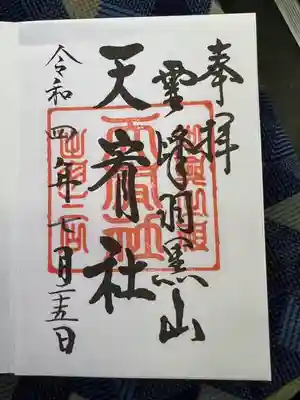 奉拝
霊峰羽黒山
天宥社
令和四年七月二五日